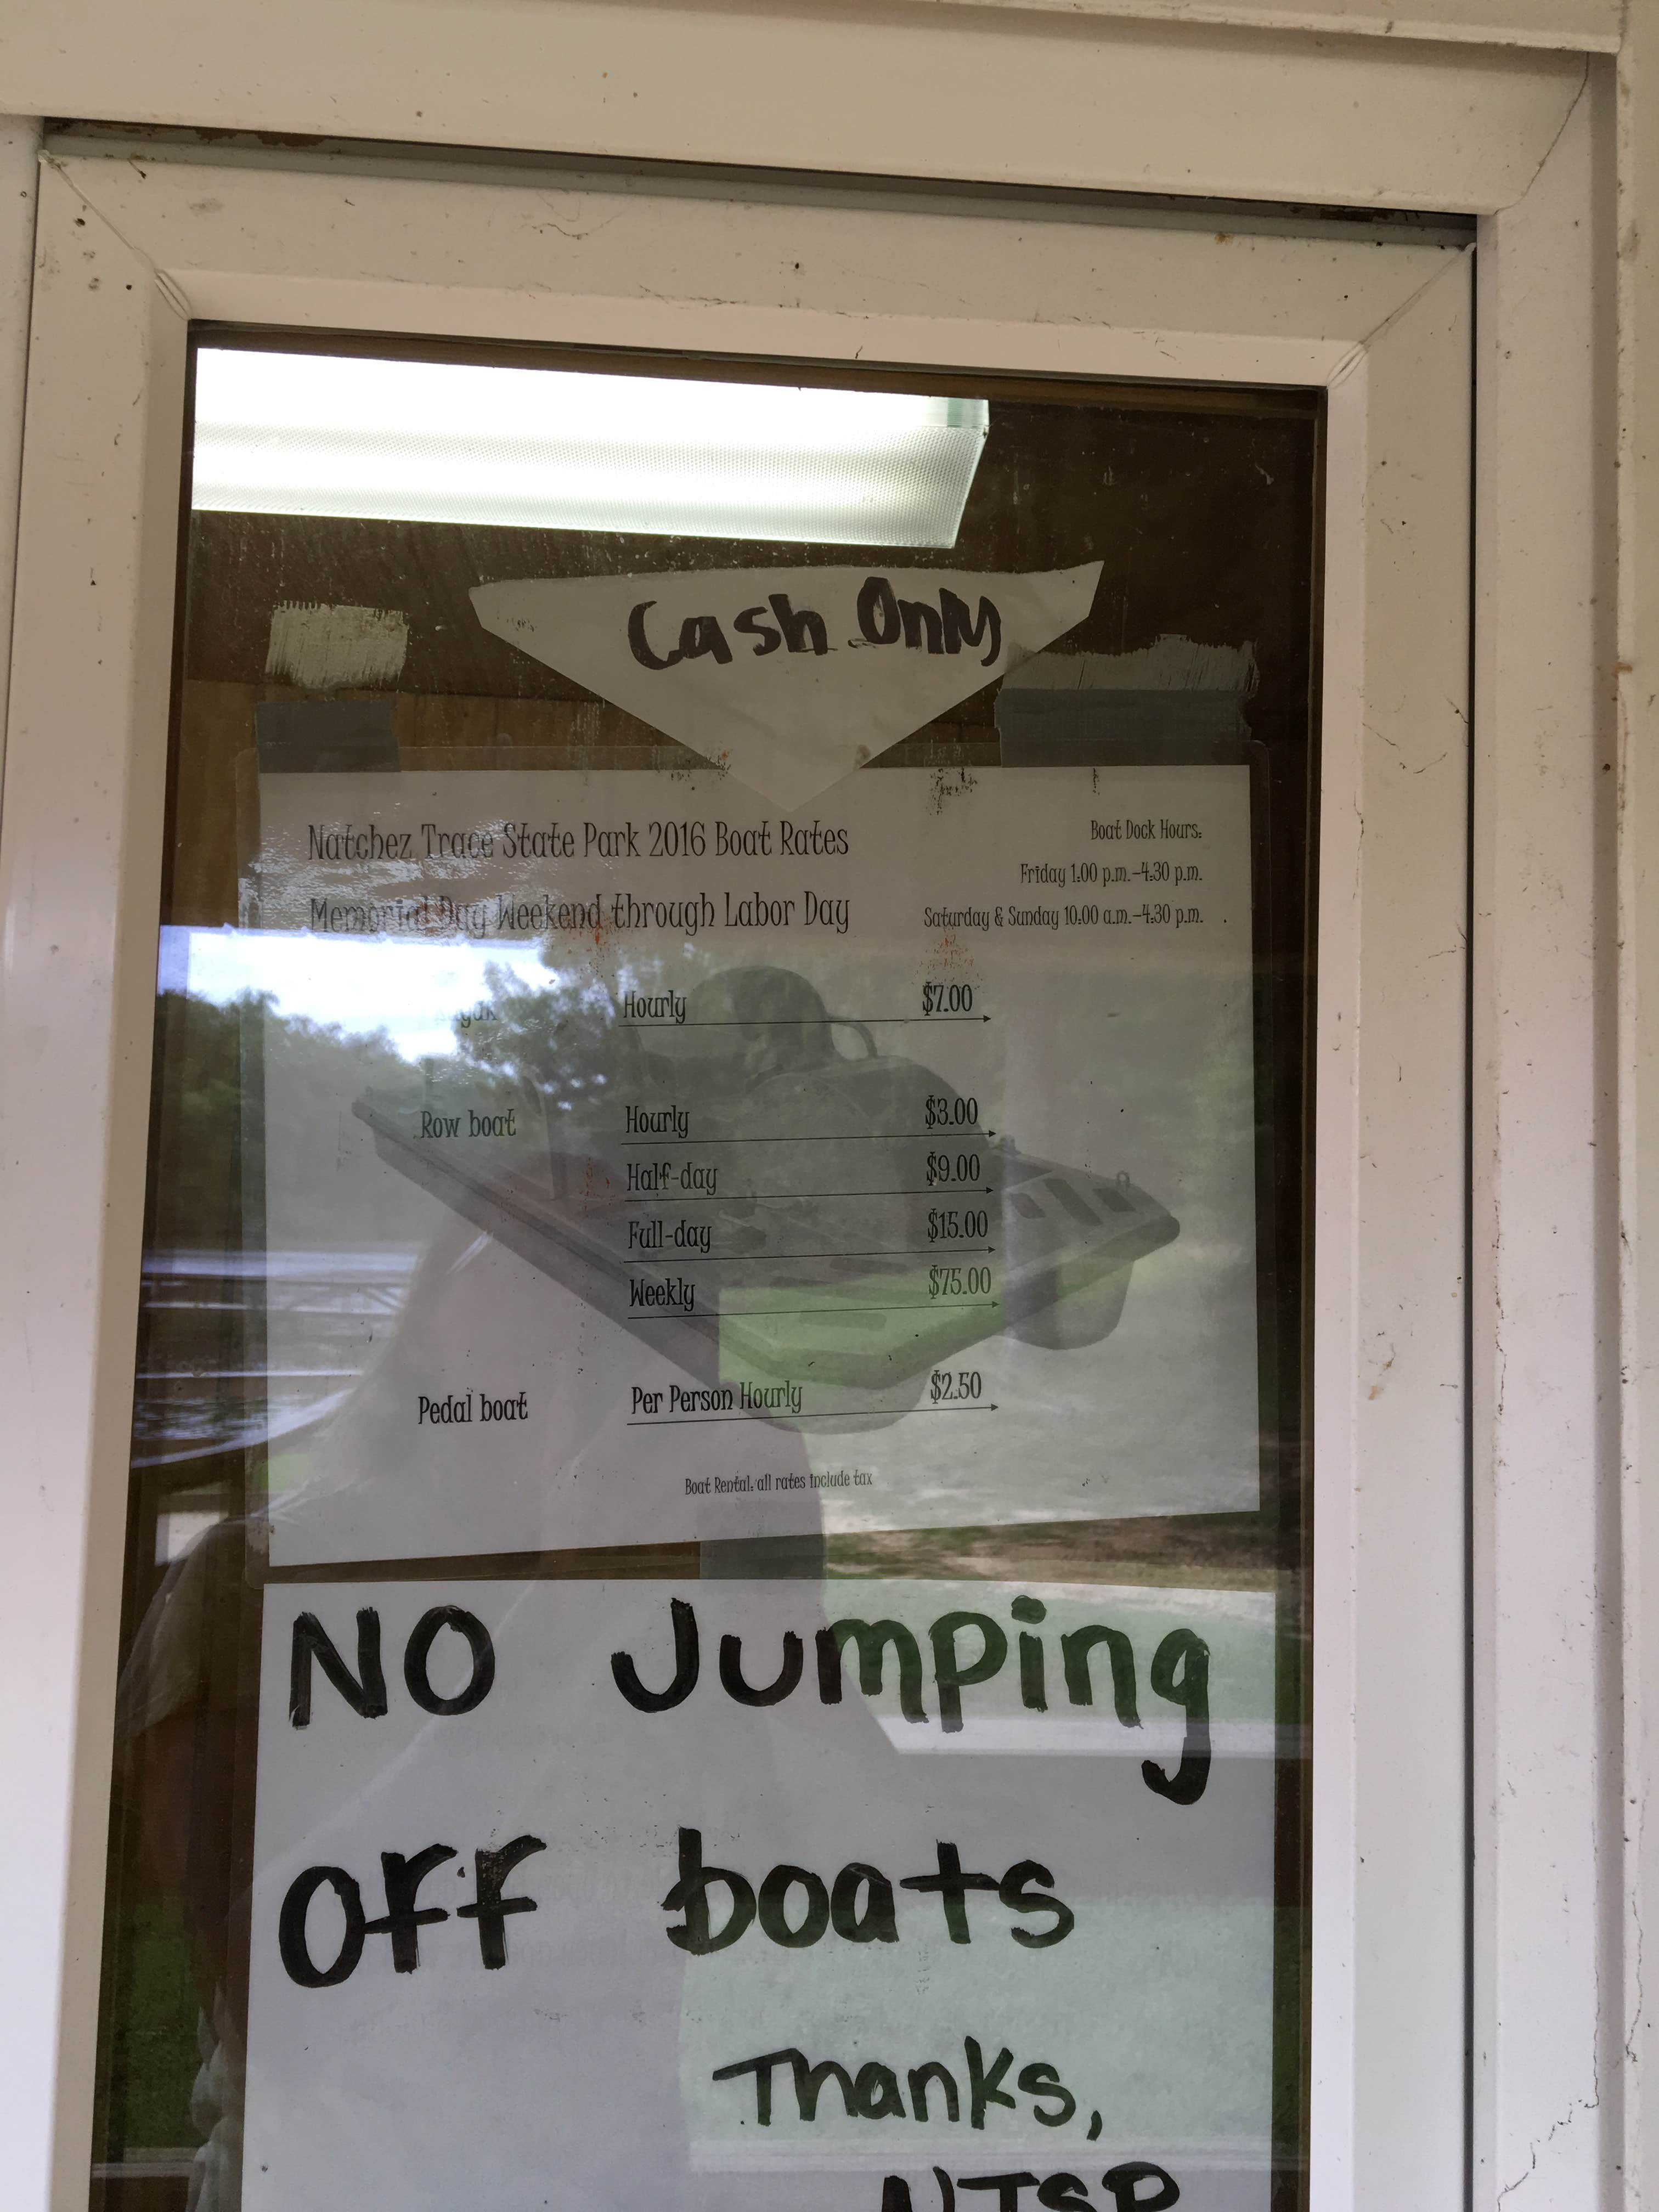 Cash Only
Natchez Trace State Park 2016 Boat Rates
Memorial Day Weekend through Labor Day
Boat Dock Hours:
Friday 1:00 p.m.-4:30 p.m.
Saturday & Sunday 10:00 a.m.-4:30 p.m.
Hourly $7.00
Row boat Hourly $3.00
Half-day $9.00
Full-day $15.00
Weekly $75.00
Pedal boat Per Person Hourly $2.50
Boat Rental: all rates include tax
NO Jumping
Off boats
Thanks,
NTSP